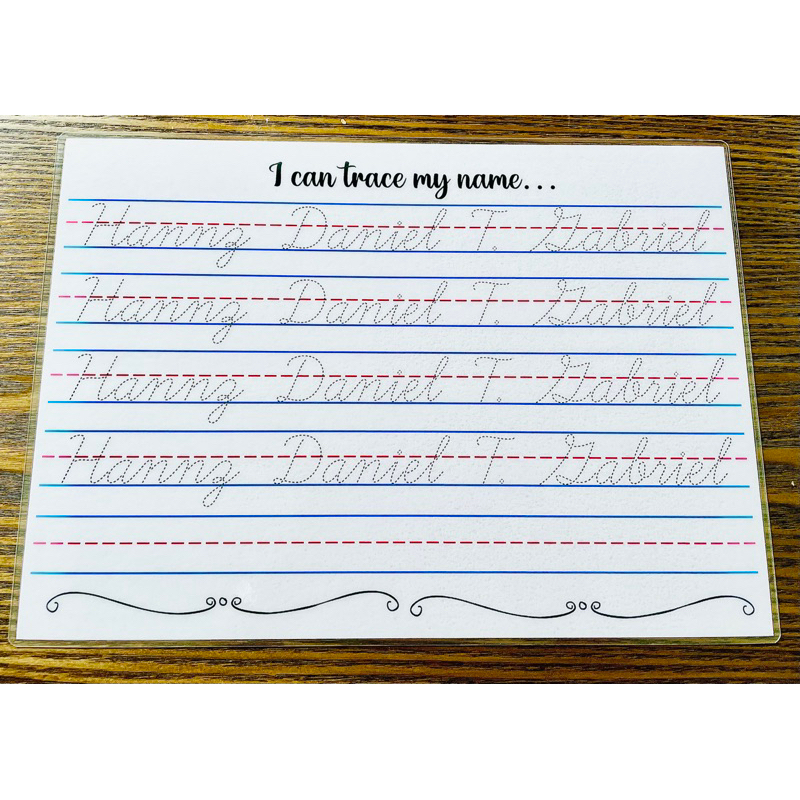 I can trace my name...
Hanng Daniel T. Gabriel
Hanng Daniel T. Gabriel
Hanng Daniel T. Gabriel
Hanng Daniel T. Gabriel